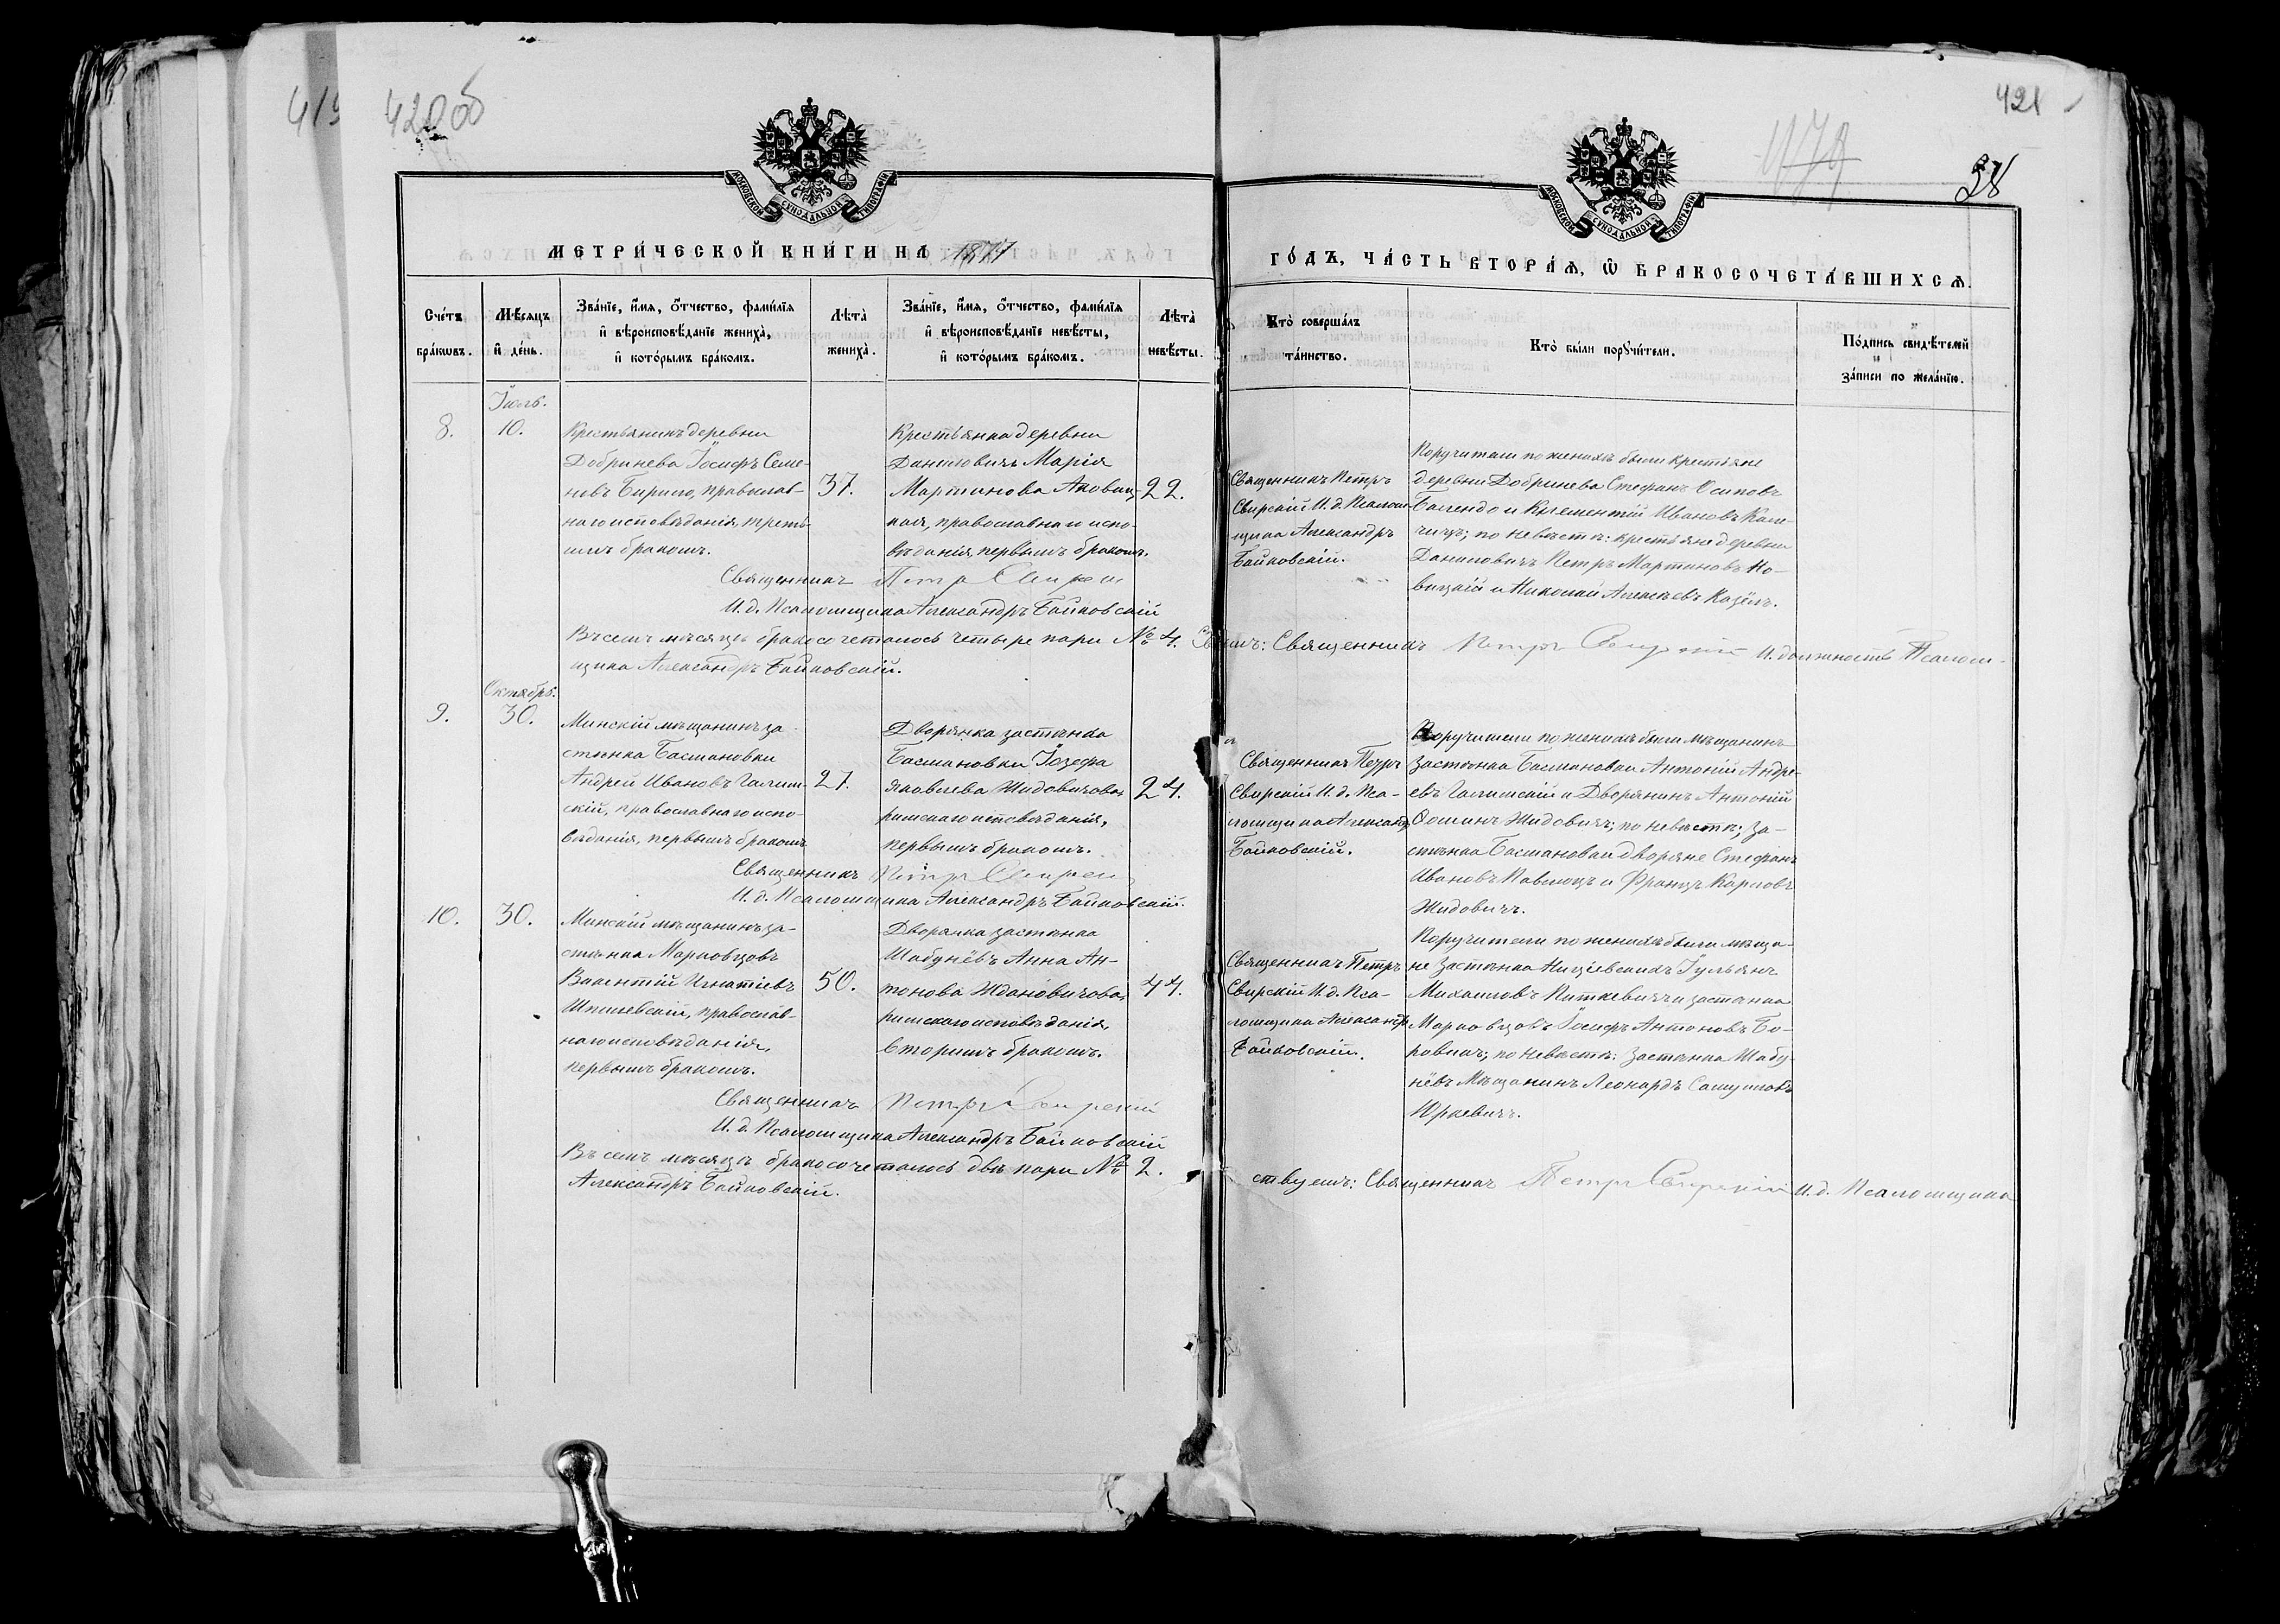 419
420 об
421
28
МОСКОВСКОЙ СѴНОДАЛЬНОЙ ТИПОГРАФІИ
МОСКОВСКОЙ СѴНОДАЛЬНОЙ ТИПОГРАФІИ
МЕТРИ́ЧЕСКОЙ КНИ́ГИ НА 1877
ГО́ДЪ, ЧА́СТЬ ВТОРА́Я, Ѿ БРАКОСОЧЕТА́ВШИХСѦ.
Сче́тъ бра́кѡвъ.
Мѣ́сѧцъ и҆ де́нь.
Зва́нїе, и҆́мѧ, ѻ҆́тчество, фами́лїѧ
и҆ вѣроисповѣ́данїе жениха̀,
и҆ кото́рымъ бра́комъ.
Лѣ́та̀ жениха̀.
Зва́нїе, и҆́мѧ, ѻ҆́тчество, фами́лїѧ
и҆ вѣроисповѣ́данїе невѣ́сты,
и҆ кото́рымъ бра́комъ.
Лѣ́та̀ невѣ́сты.
Кто̀ соверша́лъ
та́инство.
Кто̀ бы́ли порꙋчи́тели.
По́дпись свидѣ́телей
за́писи по жела́нїю.
Іюль.
8.
10.
Крестьянинъ деревни
Добринева Іосифъ Семе-
новъ Бирило, православ-
наго исповѣданія, треть-
имъ бракомъ.
37.
Крестьянка деревни
Даниловичъ Марія
Мартинова
православнаго испо-
вѣданія, первымъ бракомъ.
22.
Священникъ Петръ
Свирскій И. д. Псалом-
щика Александръ
Байковскій.
Поручители по женихѣ были крестьяне
деревни Добринева Стефанъ Осиповъ
и Климентій Ивановъ
по невѣстѣ: крестьяне деревни
Даниловичъ Петръ Мартиновъ Но-
вицкій и Николай Алексѣевъ Казёлъ.
Священникъ Петръ Свирскій
И. д. Псаломщика Александръ Байковскій
Въ семъ мѣсяцѣ бракосочеталось четыре пары № 4. Священникъ Петръ Свирскій И. должность Псалом-
щика Александръ Байковскій.
Октябрь.
9.
30.
Минскій мѣщанинъ за-
стѣнка Басмановки
Андрей Ивановъ Галин-
скій, православнаго испо-
вѣданія, первымъ бракомъ
27.
Дворянка застѣнка
Басмановки Іозефа
Яковлева Жидовичова
римскаго исповѣданія,
первымъ бракомъ.
24.
Священникъ Петръ
Свирскій И. д. Пса-
ломщика Александръ
Байковскій.
Поручители по женихѣ были мѣщанинъ
застѣнка Басмановки Антоній Андре-
евъ Галинскій и Дворянинъ Антоній
Ѳоминъ Жидовичъ; по невѣстѣ; за-
стѣнка Басмановки дворяне Стефанъ
Ивановъ Павлюць и Францъ Карловъ
Жидовичъ.
Священникъ Петръ Свирскій
И. д. Псаломщика Александръ Байковскій.
10.
30.
Минскій мѣщанинъ за-
стѣнка Марковцовъ
Викентій Игнатіевъ
Шпилевскій, православ-
наго исповѣданія,
первымъ бракомъ.
50.
Дворянка застѣнка
Шабунёвъ Анна Ан-
тонова Ждановичова,
римскаго исповѣданія,
вторымъ бракомъ.
44.
Священникъ Петръ
Свирскій И. д. Пса-
ломщика Александръ
Байковскій.
Поручители по женихѣ были мѣща-
не застѣнка Юльянъ
Михаиловъ Питкевичъ и застѣнка
Марковцовъ Іосифъ Антоновъ Бо-
ровикъ; по невѣстѣ: застѣнка Шабу-
нёвъ Мѣщанинъ Леонардъ Самуиловъ
Юркевичъ.
Священникъ Петръ Свирскій
И. д. Псаломщика Александръ Байковскій
Въ семъ мѣсяцѣ бракосочеталось двѣ пары № 2. ствуемъ: Священникъ Петръ Свирскій И. д. Псаломщика
Александръ Байковскій.